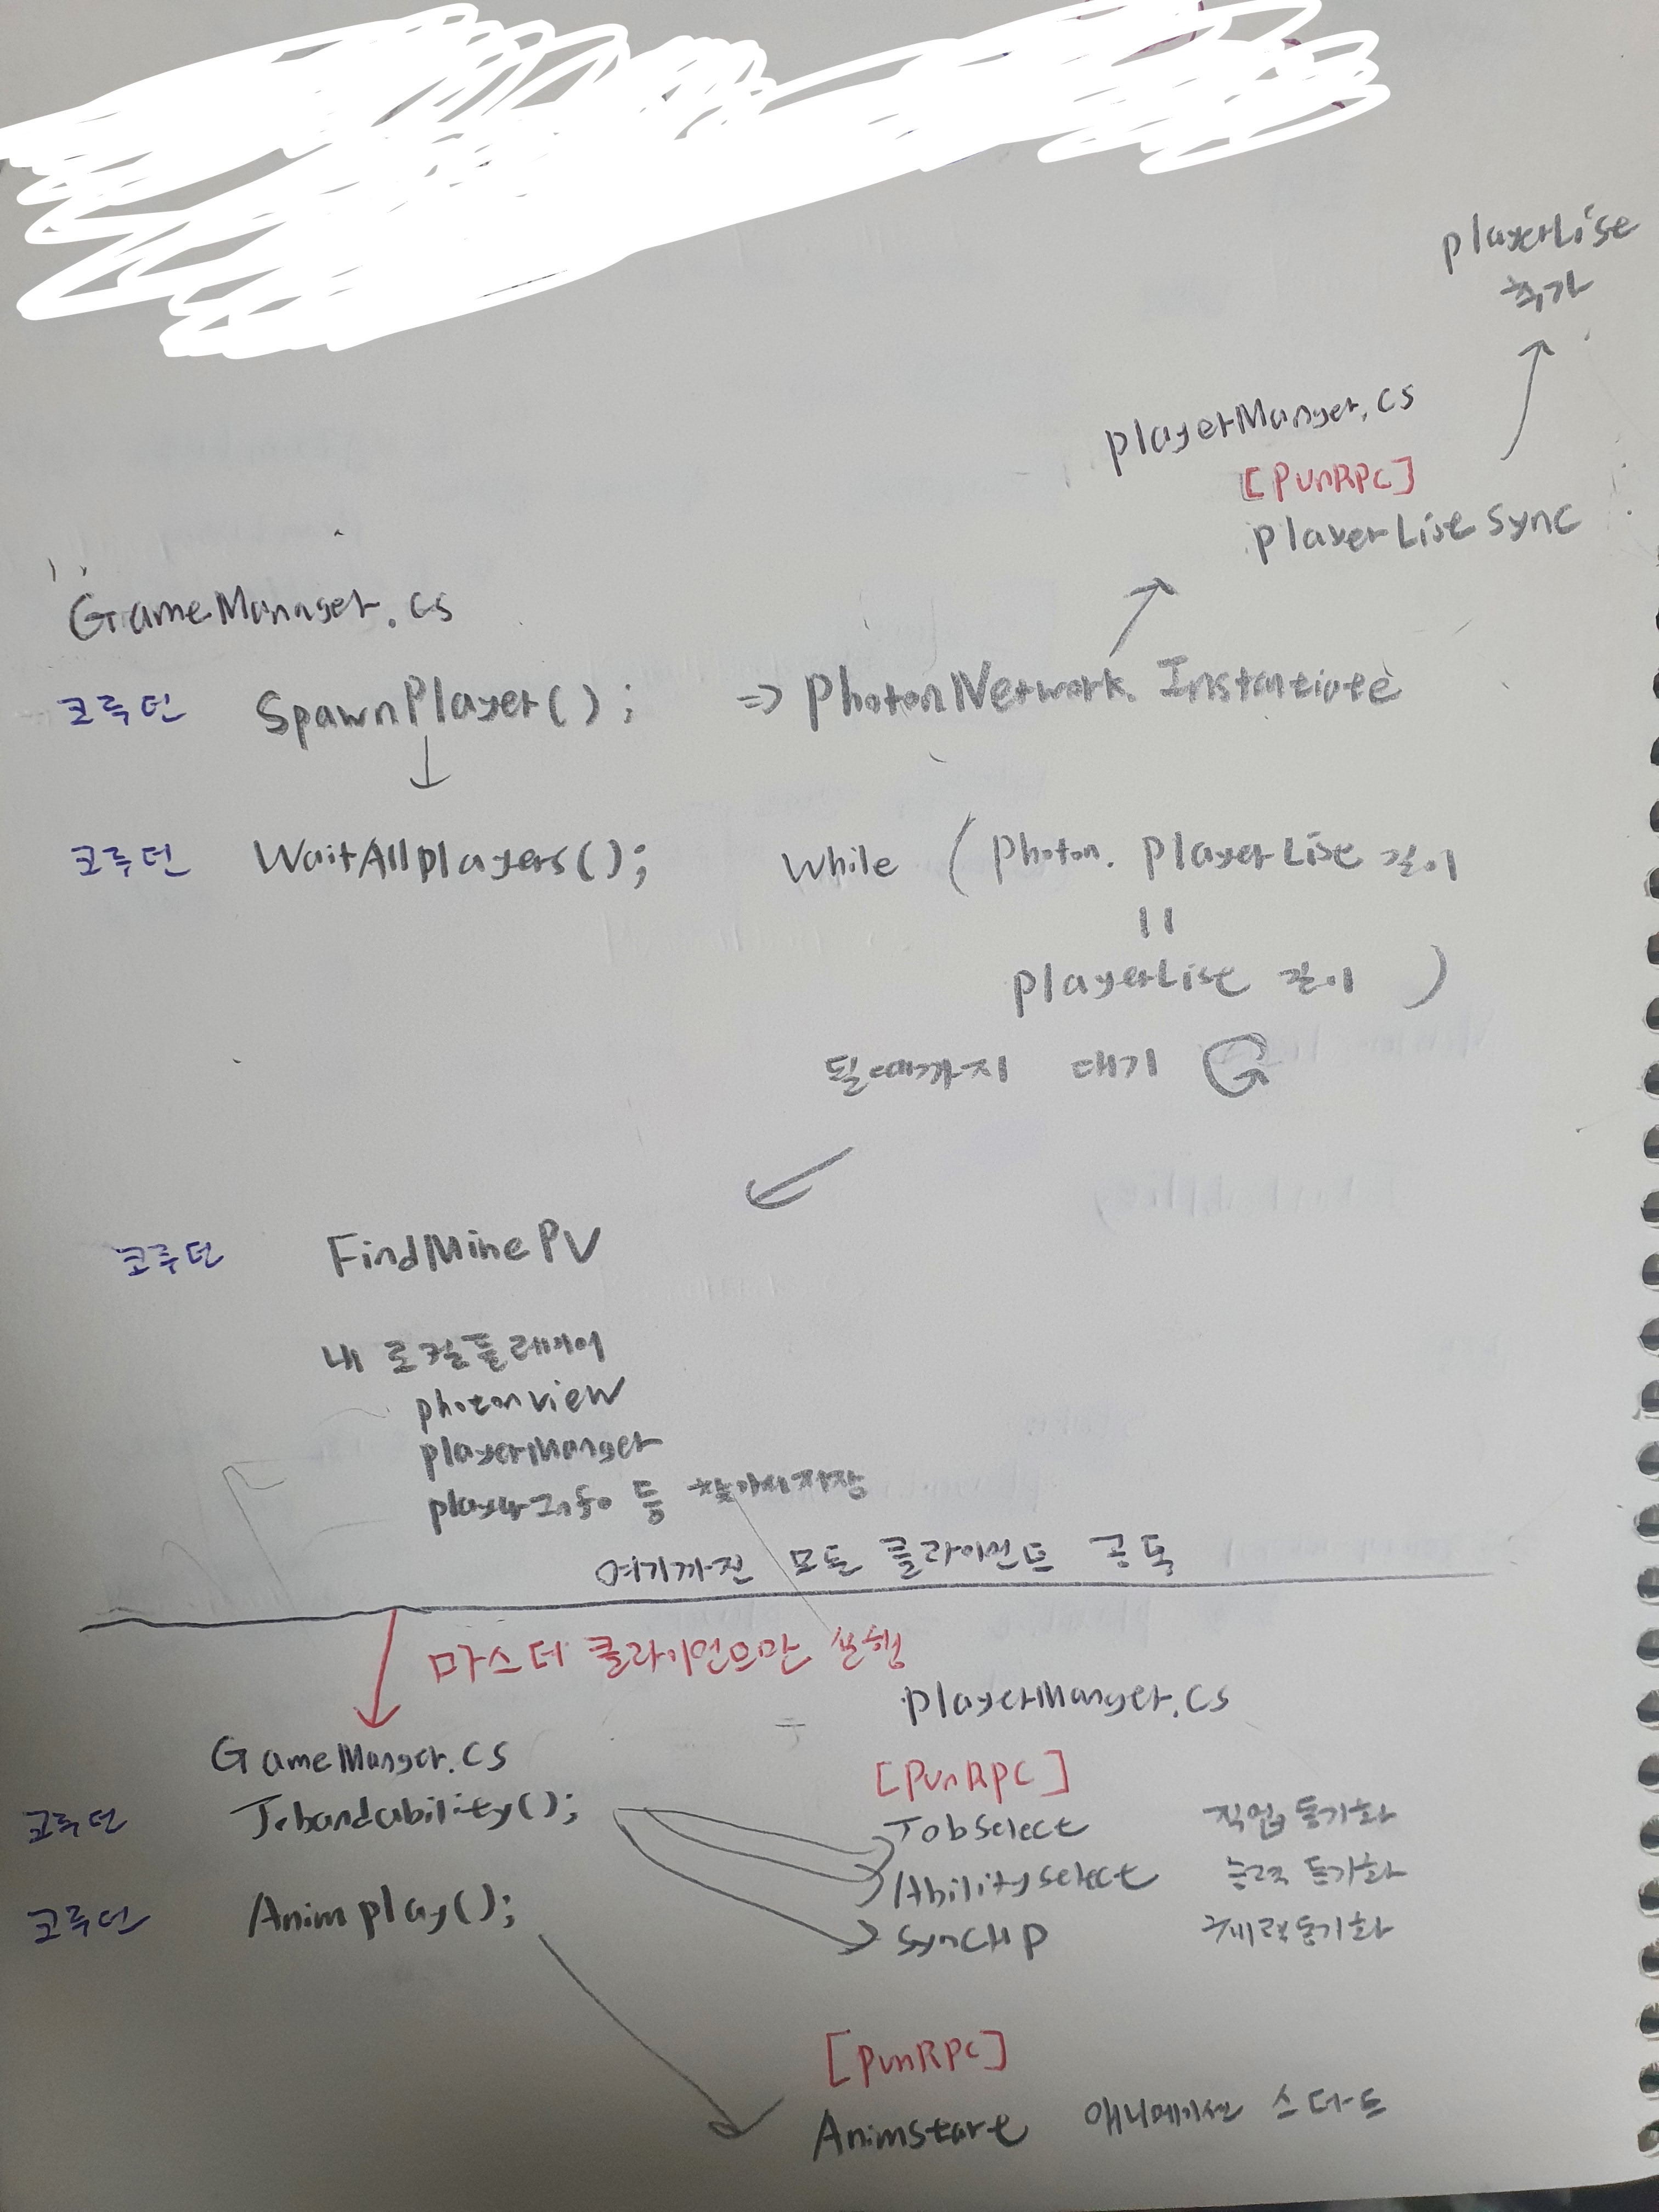 playerList
추가
playerManger.cs
[PunRPC]
playerListSync
GameManager.cs
코루틴 SpawnPlayer(); => PhotonNetwork. Instantiate
코루틴 WaitAllplayers(); while ( photon. playerList 길이
=
playerList 길이 )
될때까지 대기
코루틴 FindMinePV
내 로컬플레이어
photonview
playerManger
playerInfo 등 찾아서저장
여기까진 모든 클라이언트 공통
마스터 클라이언트만 실행
GameManger.cs
playerManger.cs
[PunRPC]
코루틴 Jobandability();
JobSelect 직업동기화
AbilitySelect 능력 동기화
코루틴 Animplay();
SyncHP 체력동기화
[PunRPC]
Animstart 애니메이션 스타트